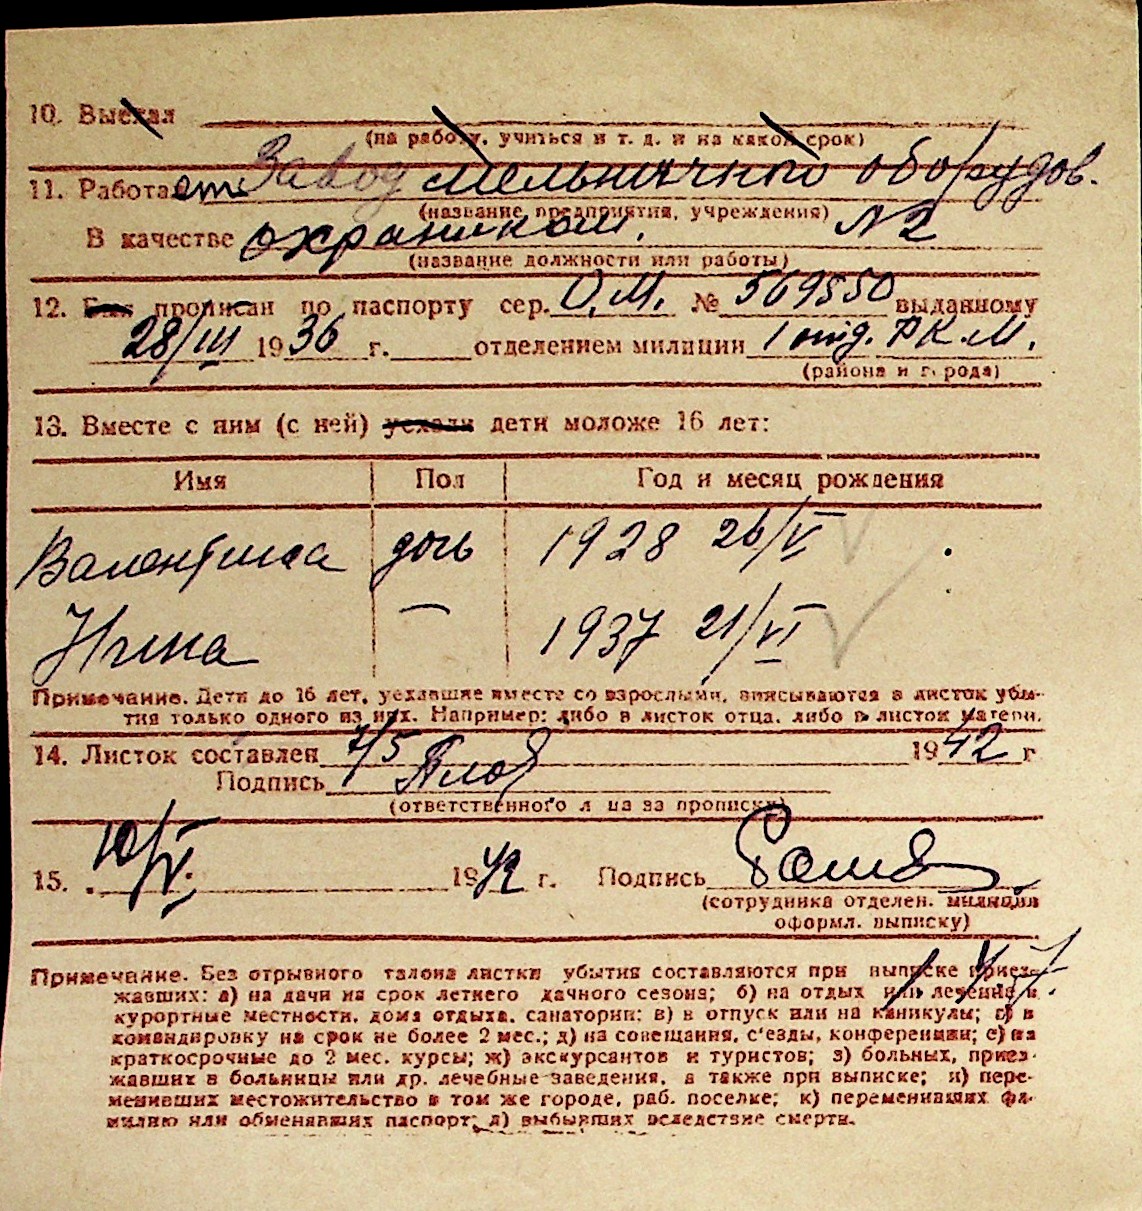 10. Выехал
(на работу, учиться и т. д. и на какой срок)
11. Работает Завод мельничного оборудов.
(название предприятия, учреждения) № 2
В качестве охранником.
(название должности или работы)
12. Был прописан по паспорту сер. О.М. № 569550 выданному
28/III 1936 г. отделением милиции 1 отд. Р.К.М.
(района и города)
13. Вместе с ним (с ней) уехали дети моложе 16 лет:
Имя Пол Год и месяц рождения
Валентина дочь 1928 26/V
Нина — 1937 21/VI
Примечание. Дети до 16 лет, уехавшие вместе со взрослыми, вписываются в листок убы-
тия только одного из них. Например: либо в листок отца, либо в листок матери.
14. Листок составлен 7/5 1942 г
Подпись
(ответственного лица за прописку)
15. 10/V. 1942 г. Подпись
(сотрудника отделен. милиции
оформл. выписку)
Примечание. Без отрывного талона листки убытия составляются при выписке приез-
жавших: а) на дачи на срок летнего дачного сезона; б) на отдых или лечение в
курортные местности, дома отдыха, санатории; в) в отпуск или на каникулы; г) в
командировку на срок не более 2 мес.; д) на совещания, с'езды, конференции; е) на
краткосрочные до 2 мес. курсы; ж) экскурсантов и туристов; з) больных, приез-
жавших в больницы или др. лечебные заведения, а также при выписке; и) пере-
менивших местожительство в том же городе, раб. поселке; к) переменивших фа-
милию или обменявших паспорт; л) выбывших вследствие смерти.